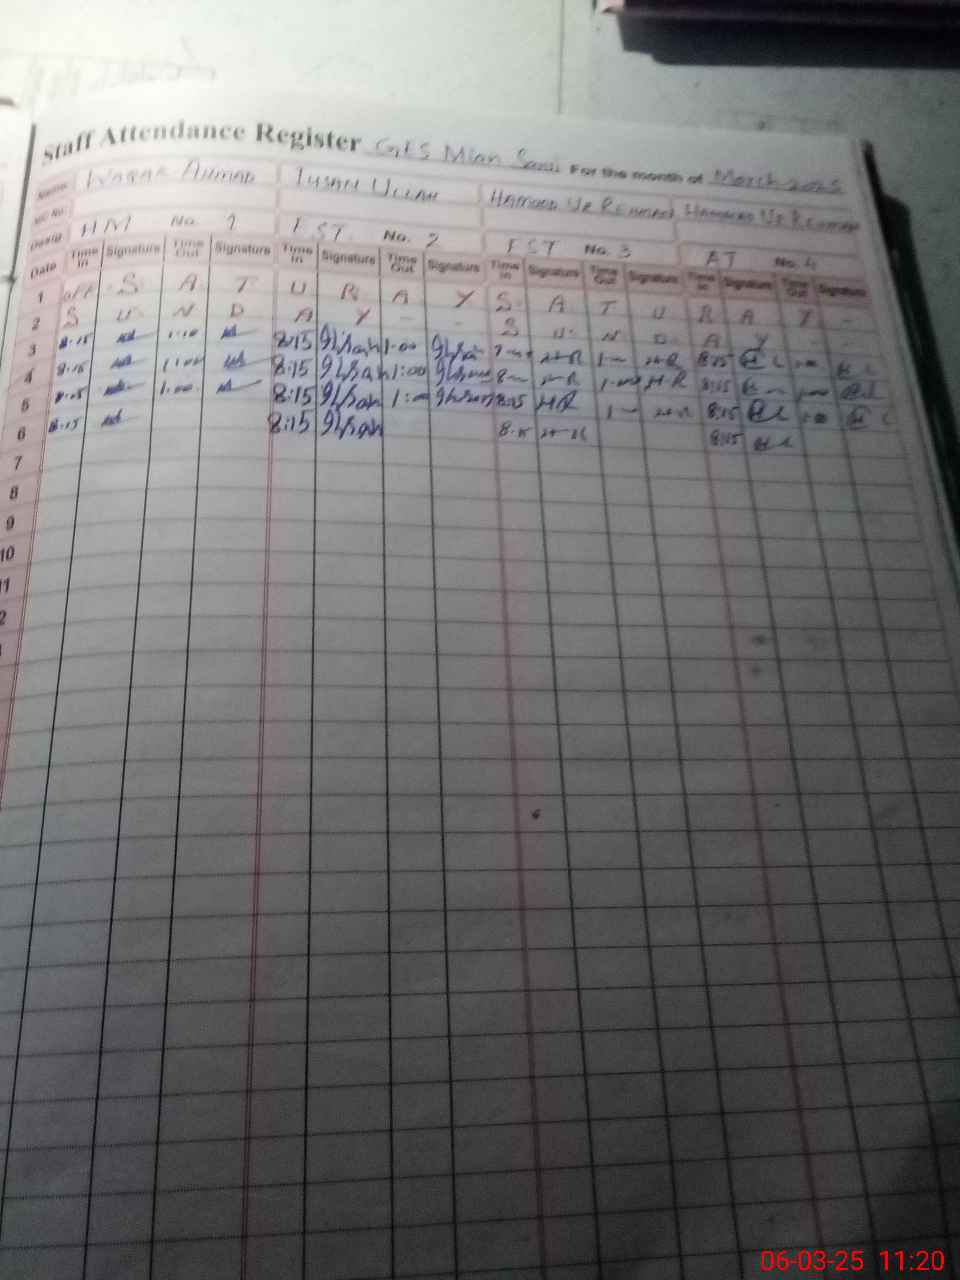 Staff Attendance Register GES Mian For the month of March 2025
Name WAQAR AHMAD IHSAN ULLAH HAMOOD UR REHMAN HAMMAD UR REHMAN
NIC No
Desig HM No. 1 EST. No. 2 EST No. 3 AT No. 4
Date Time In Signature Time Out Signature Time In Signature Time Out Signature Time In Signature Time Out Signature Time In Signature Time Out Signature
1 off S A T U R A Y S A T U R A Y -
2 S U N D A Y - - S U N D A Y
3 8:15 1:00 8:15 Ihsan 1:00 Ihsan H-R 1- H-R 8:15
4 8:15 1:00 8:15 Ihsan 1:00 Ihsan 8- H-R 1-00 H-R 8:15
5 8:15 1:00 8:15 Ihsan 1:00 Ihsan 8:15 HR 1- H-R 8:15
6 8:15 8:15 Ihsan 8:15 H-R 8:15
7
8
9
10
11
2
06-03-25 11:20